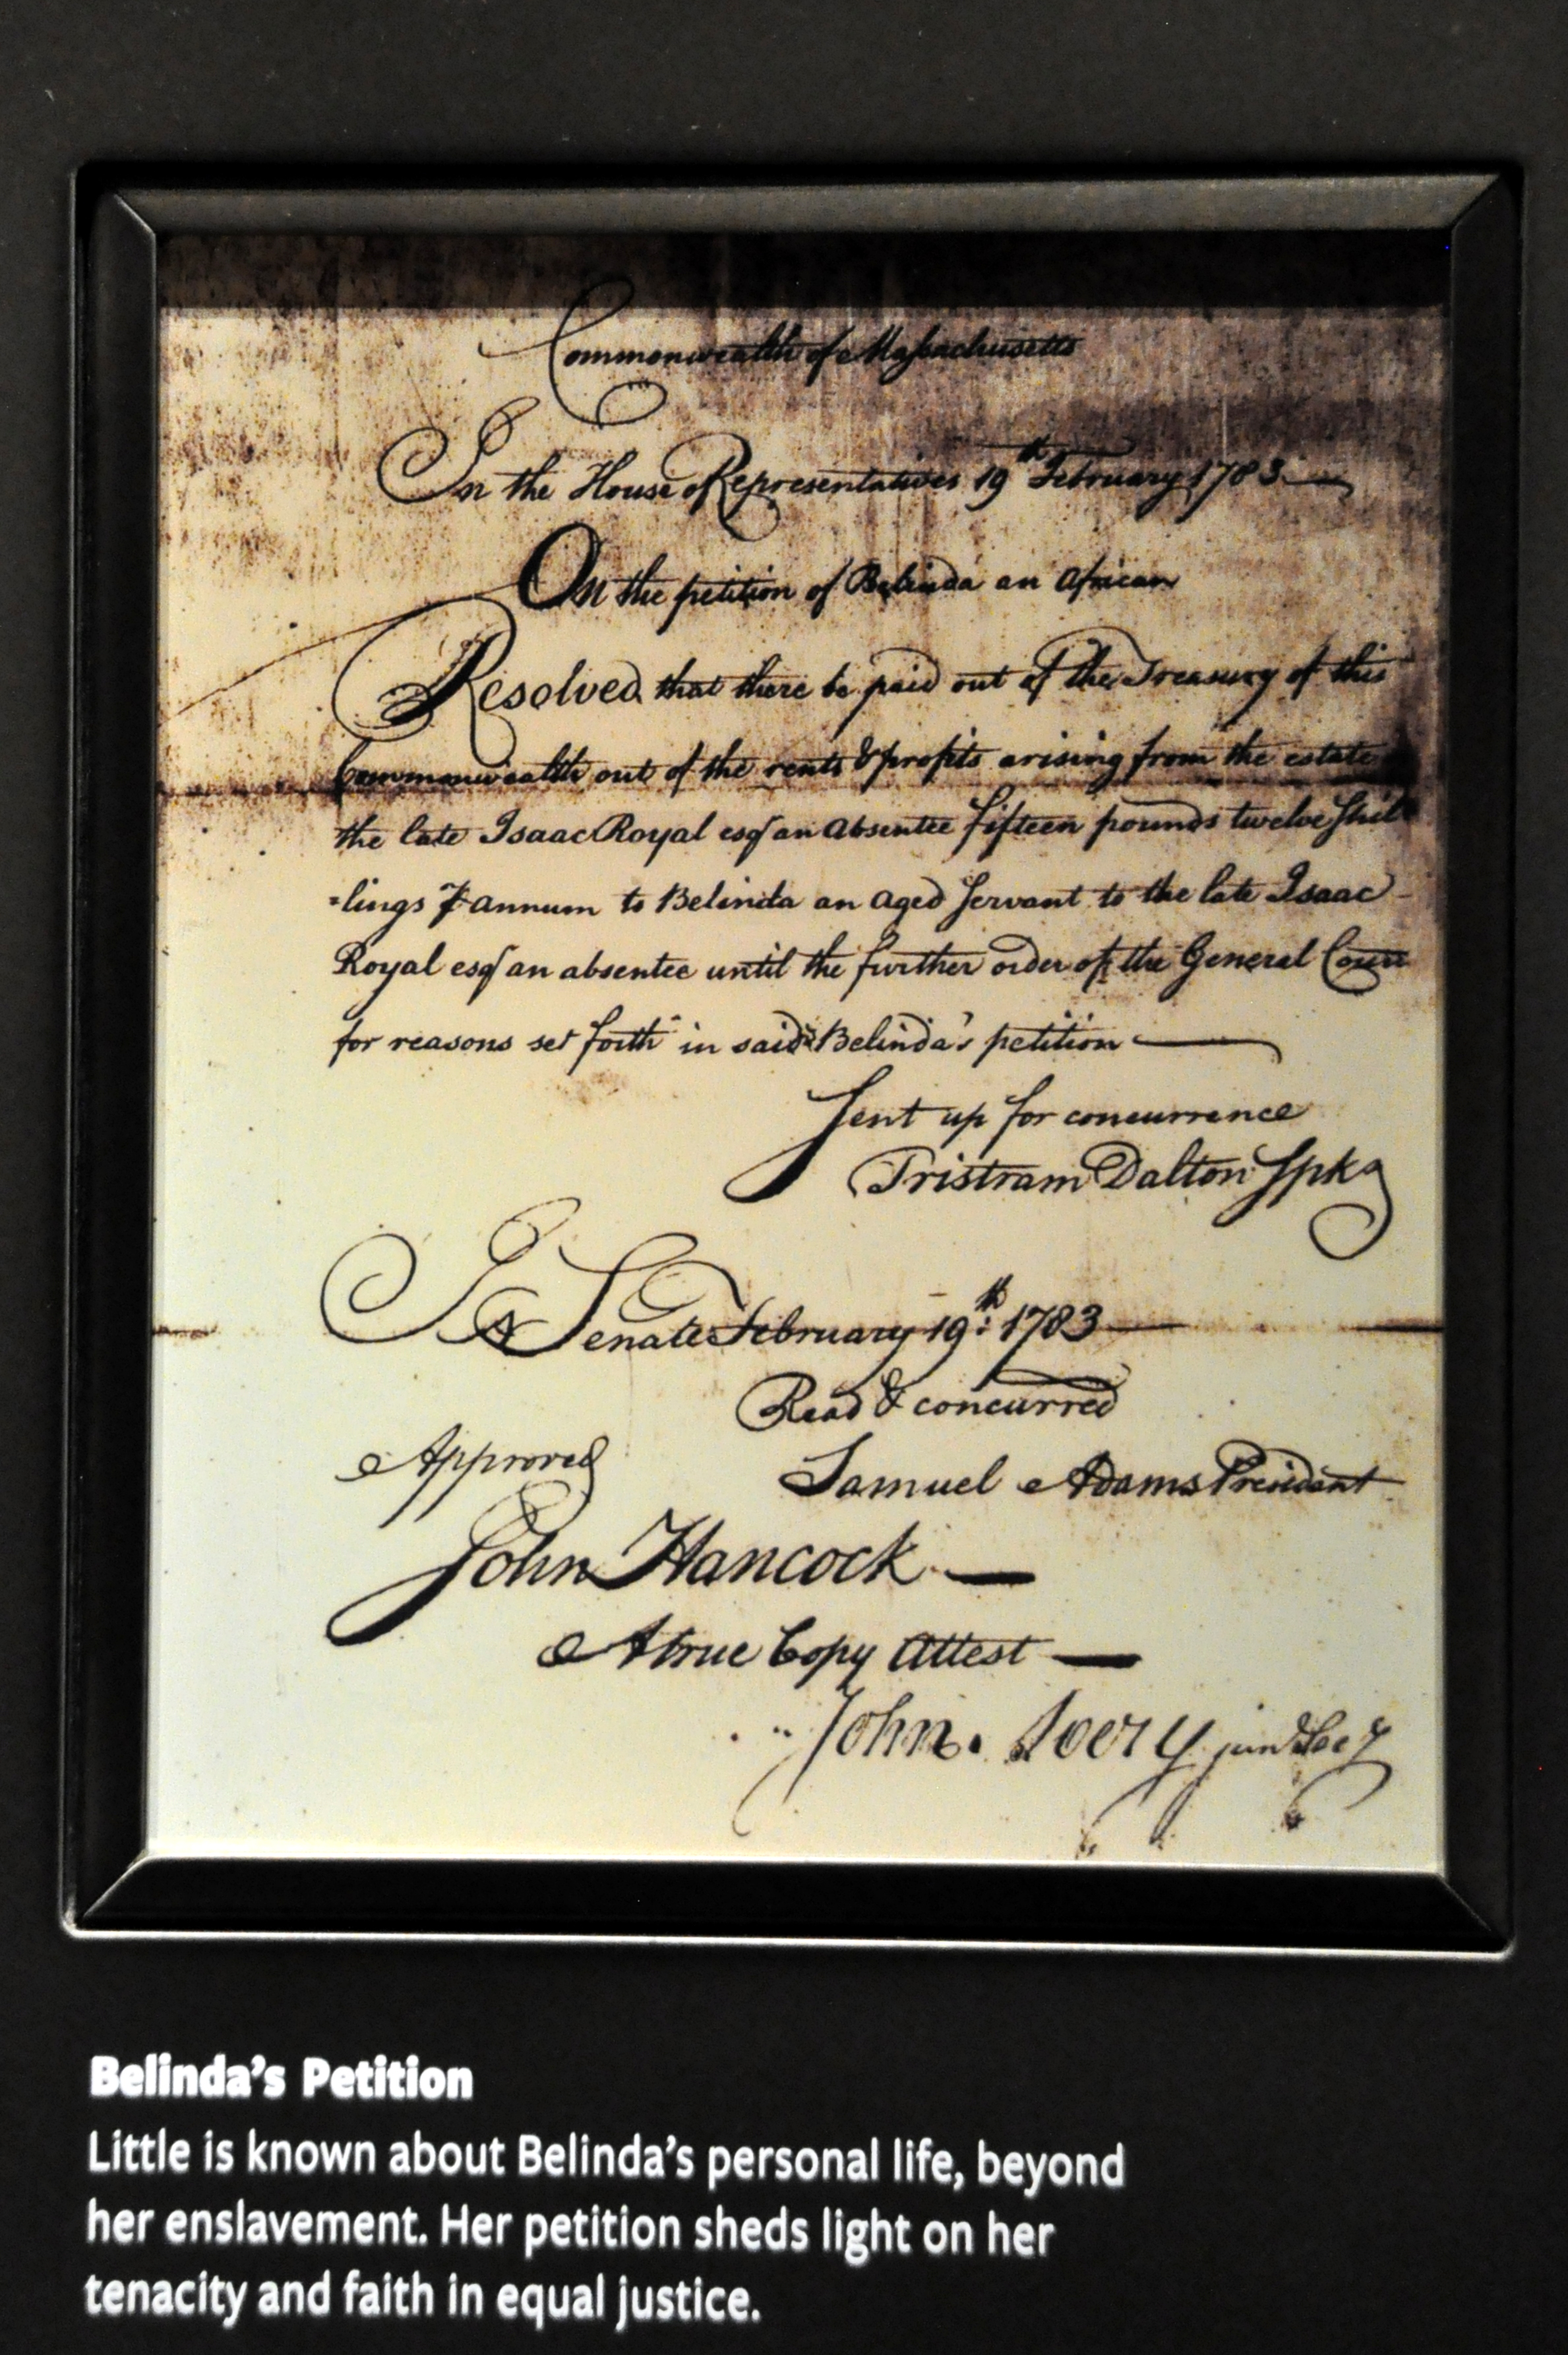 Commonwealth of Massachusetts
In the House of Representatives 19th February 1783
On the petition of Belinda an African
Resolved that there be paid out of the Treasury of this
Commonwealth out of the rents & profits arising from the estate
the late Isaac Royal esqr an absentee fifteen pounds twelve shil
=lings ⅌ annum to Belinda an aged servant to the late Isaac
Royal esqr an absentee until the further order of the General Court
for reasons set forth in said Belinda's petition
Sent up for concurrence
Tristram Dalton Spkr
In Senate February 19th: 1783
Read & concurred
Approved
Samuel Adams President
John Hancock
A true Copy Attest
John Avery junr Secy
Belinda's Petition
Little is known about Belinda's personal life, beyond
her enslavement. Her petition sheds light on her
tenacity and faith in equal justice.